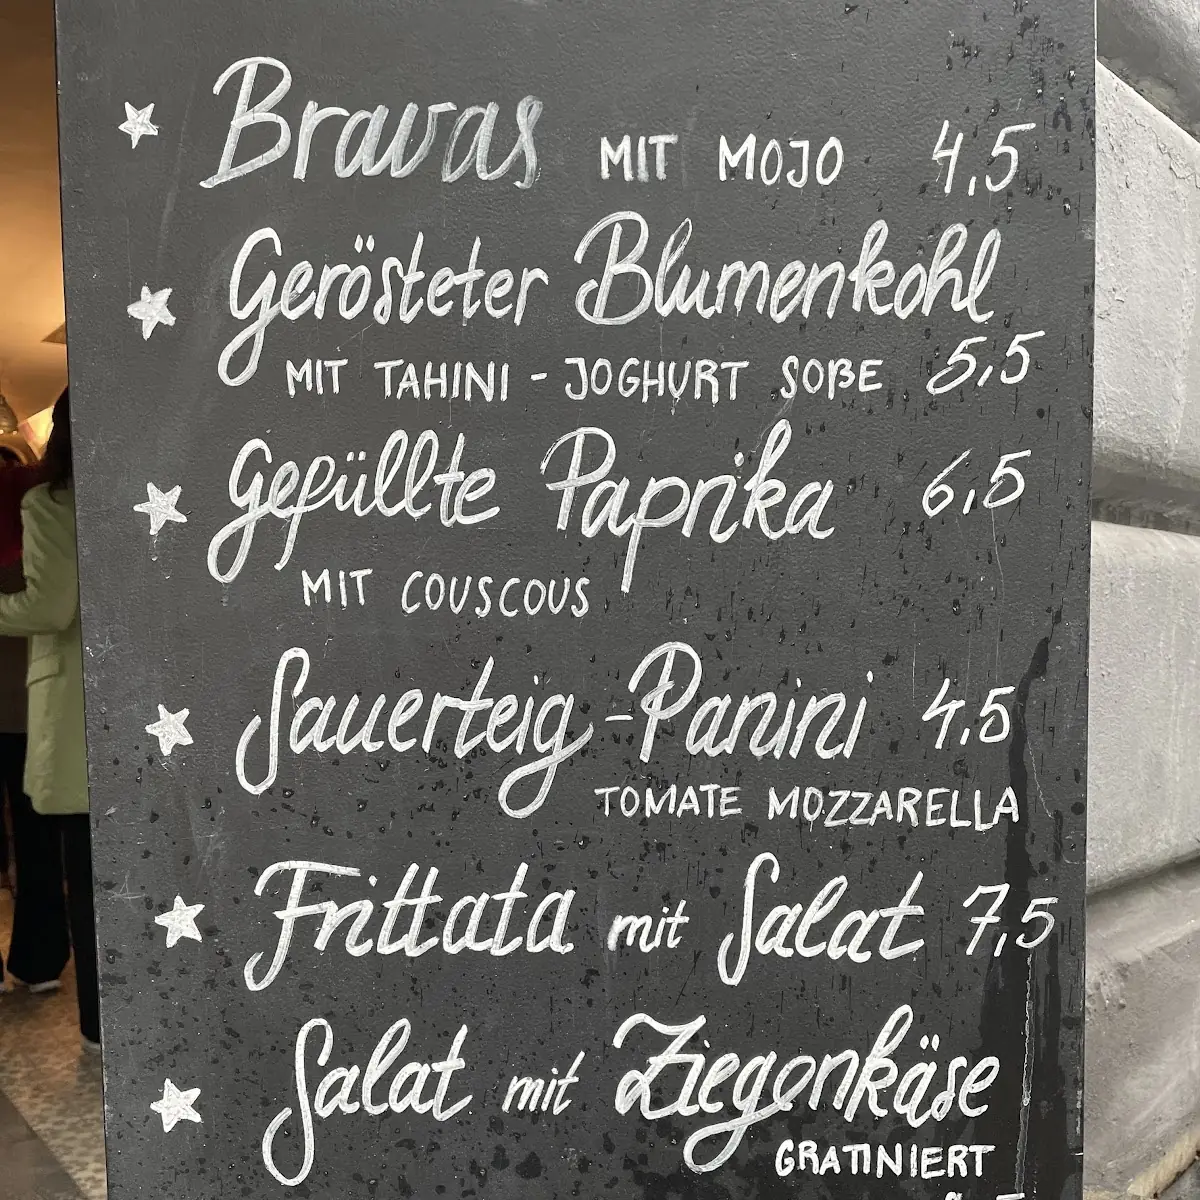 Bravas MIT MOJO 4,5
Gerösteter Blumenkohl
MIT TAHINI - JOGHURT SOßE 5,5
Gefüllte Paprika 6,5
MIT COUSCOUS
Sauerteig-Panini 4,5
TOMATE MOZZARELLA
Frittata mit Salat 7,5
Salat mit Ziegenkäse
GRATINIERT